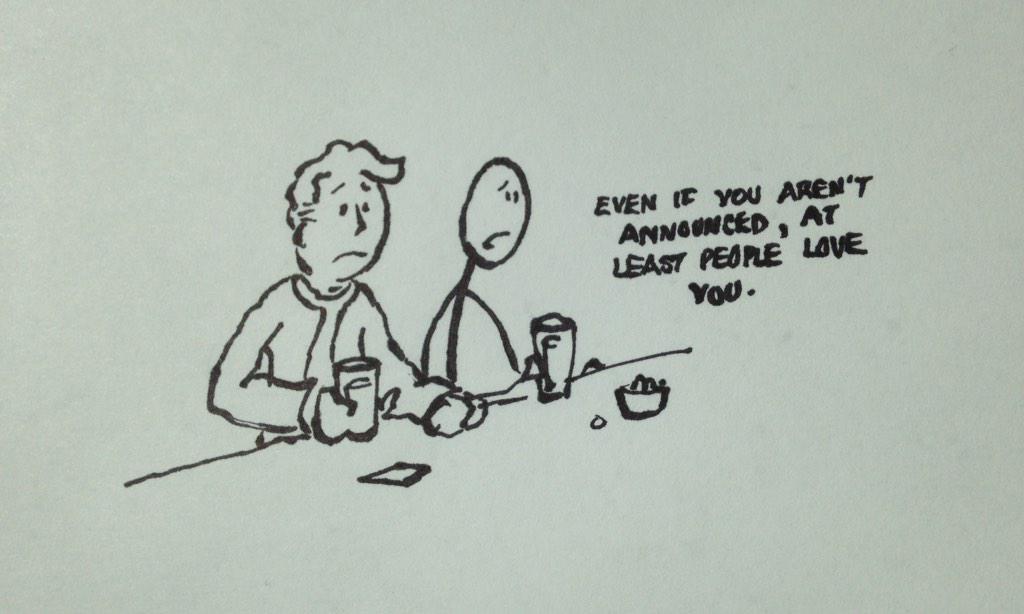 EVEN IF YOU AREN'T
ANNOUNCED, AT
LEAST PEOPLE LOVE
YOU.